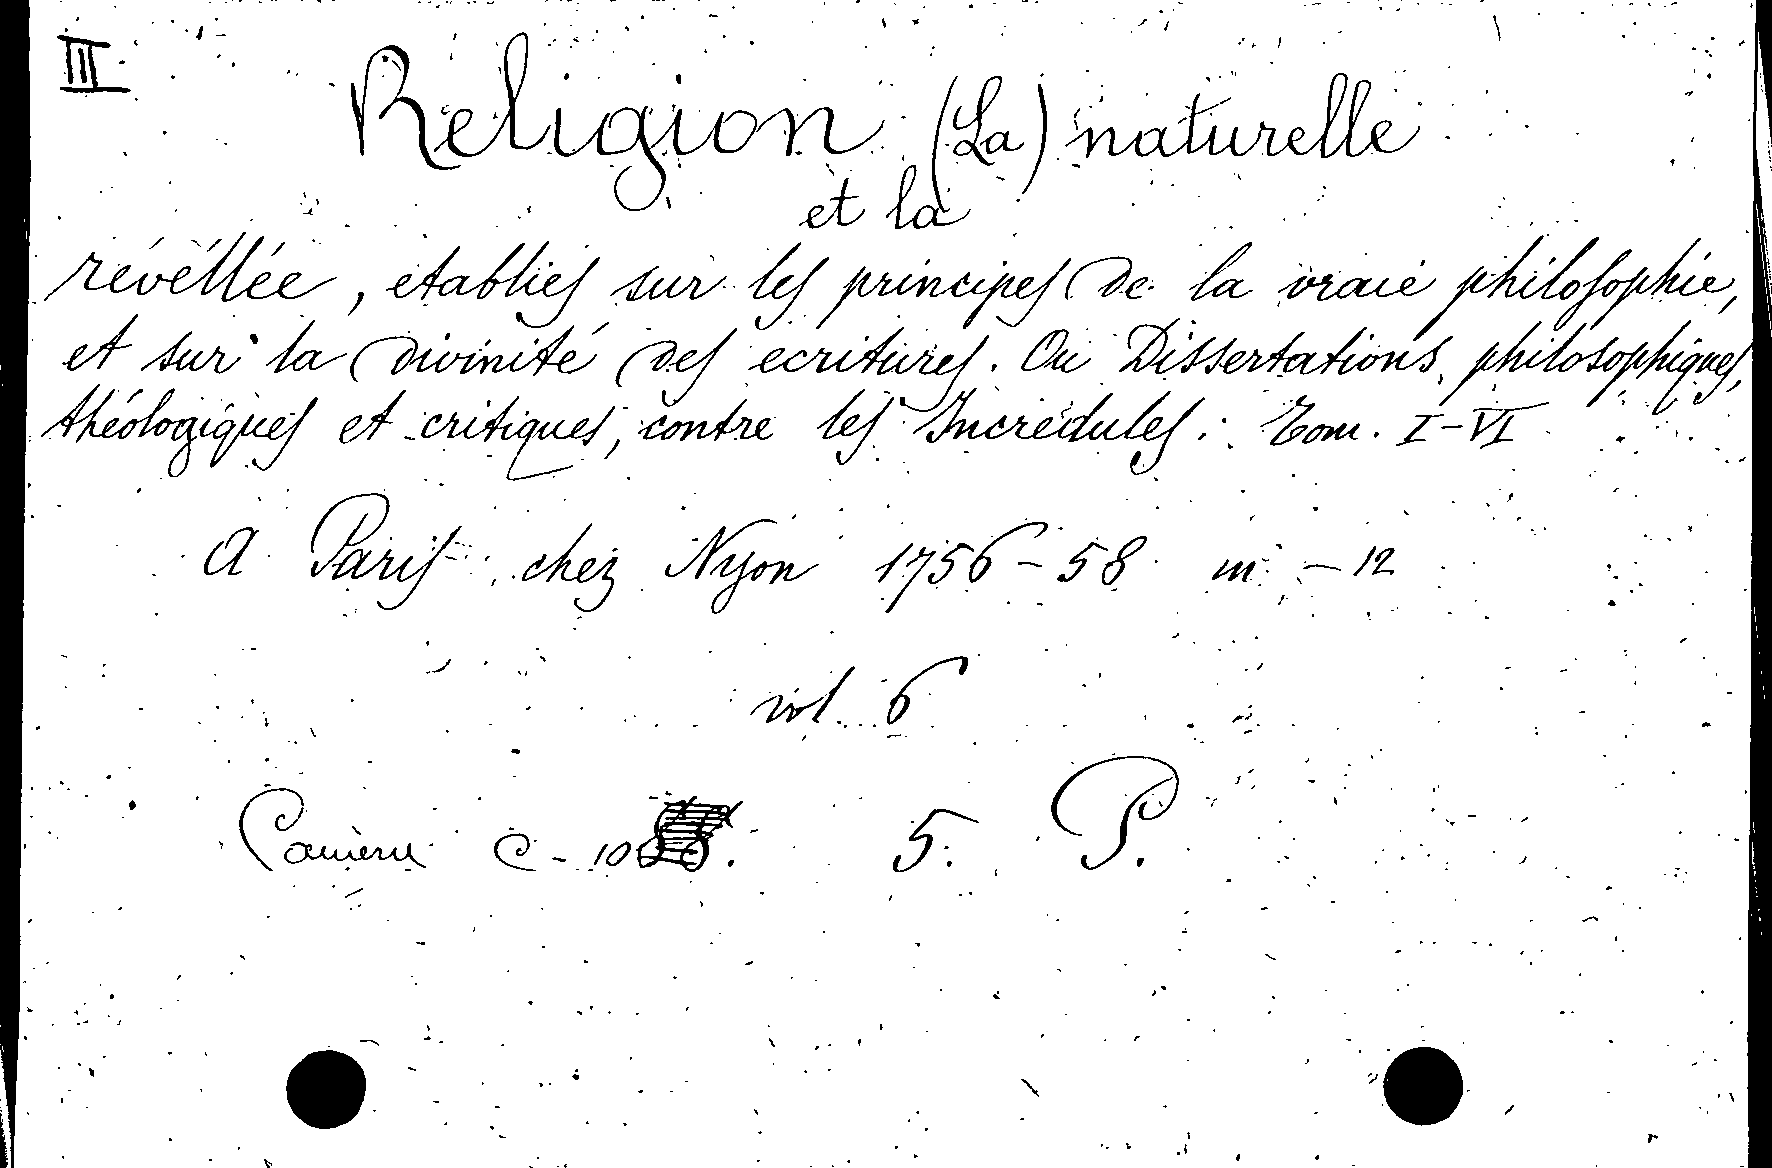 III
Religion (La) naturelle
et la
révéllée, etablies sur les principes de la vraie philosophie,
et sur la divinité des ecritures. Ou Dissertations philosophiques,
théologiques et critiques, contre les Incrédules. Tom. I-VI
A Paris chez Nyon 1756-58 in -12
vol. 6
C-10
5. P.